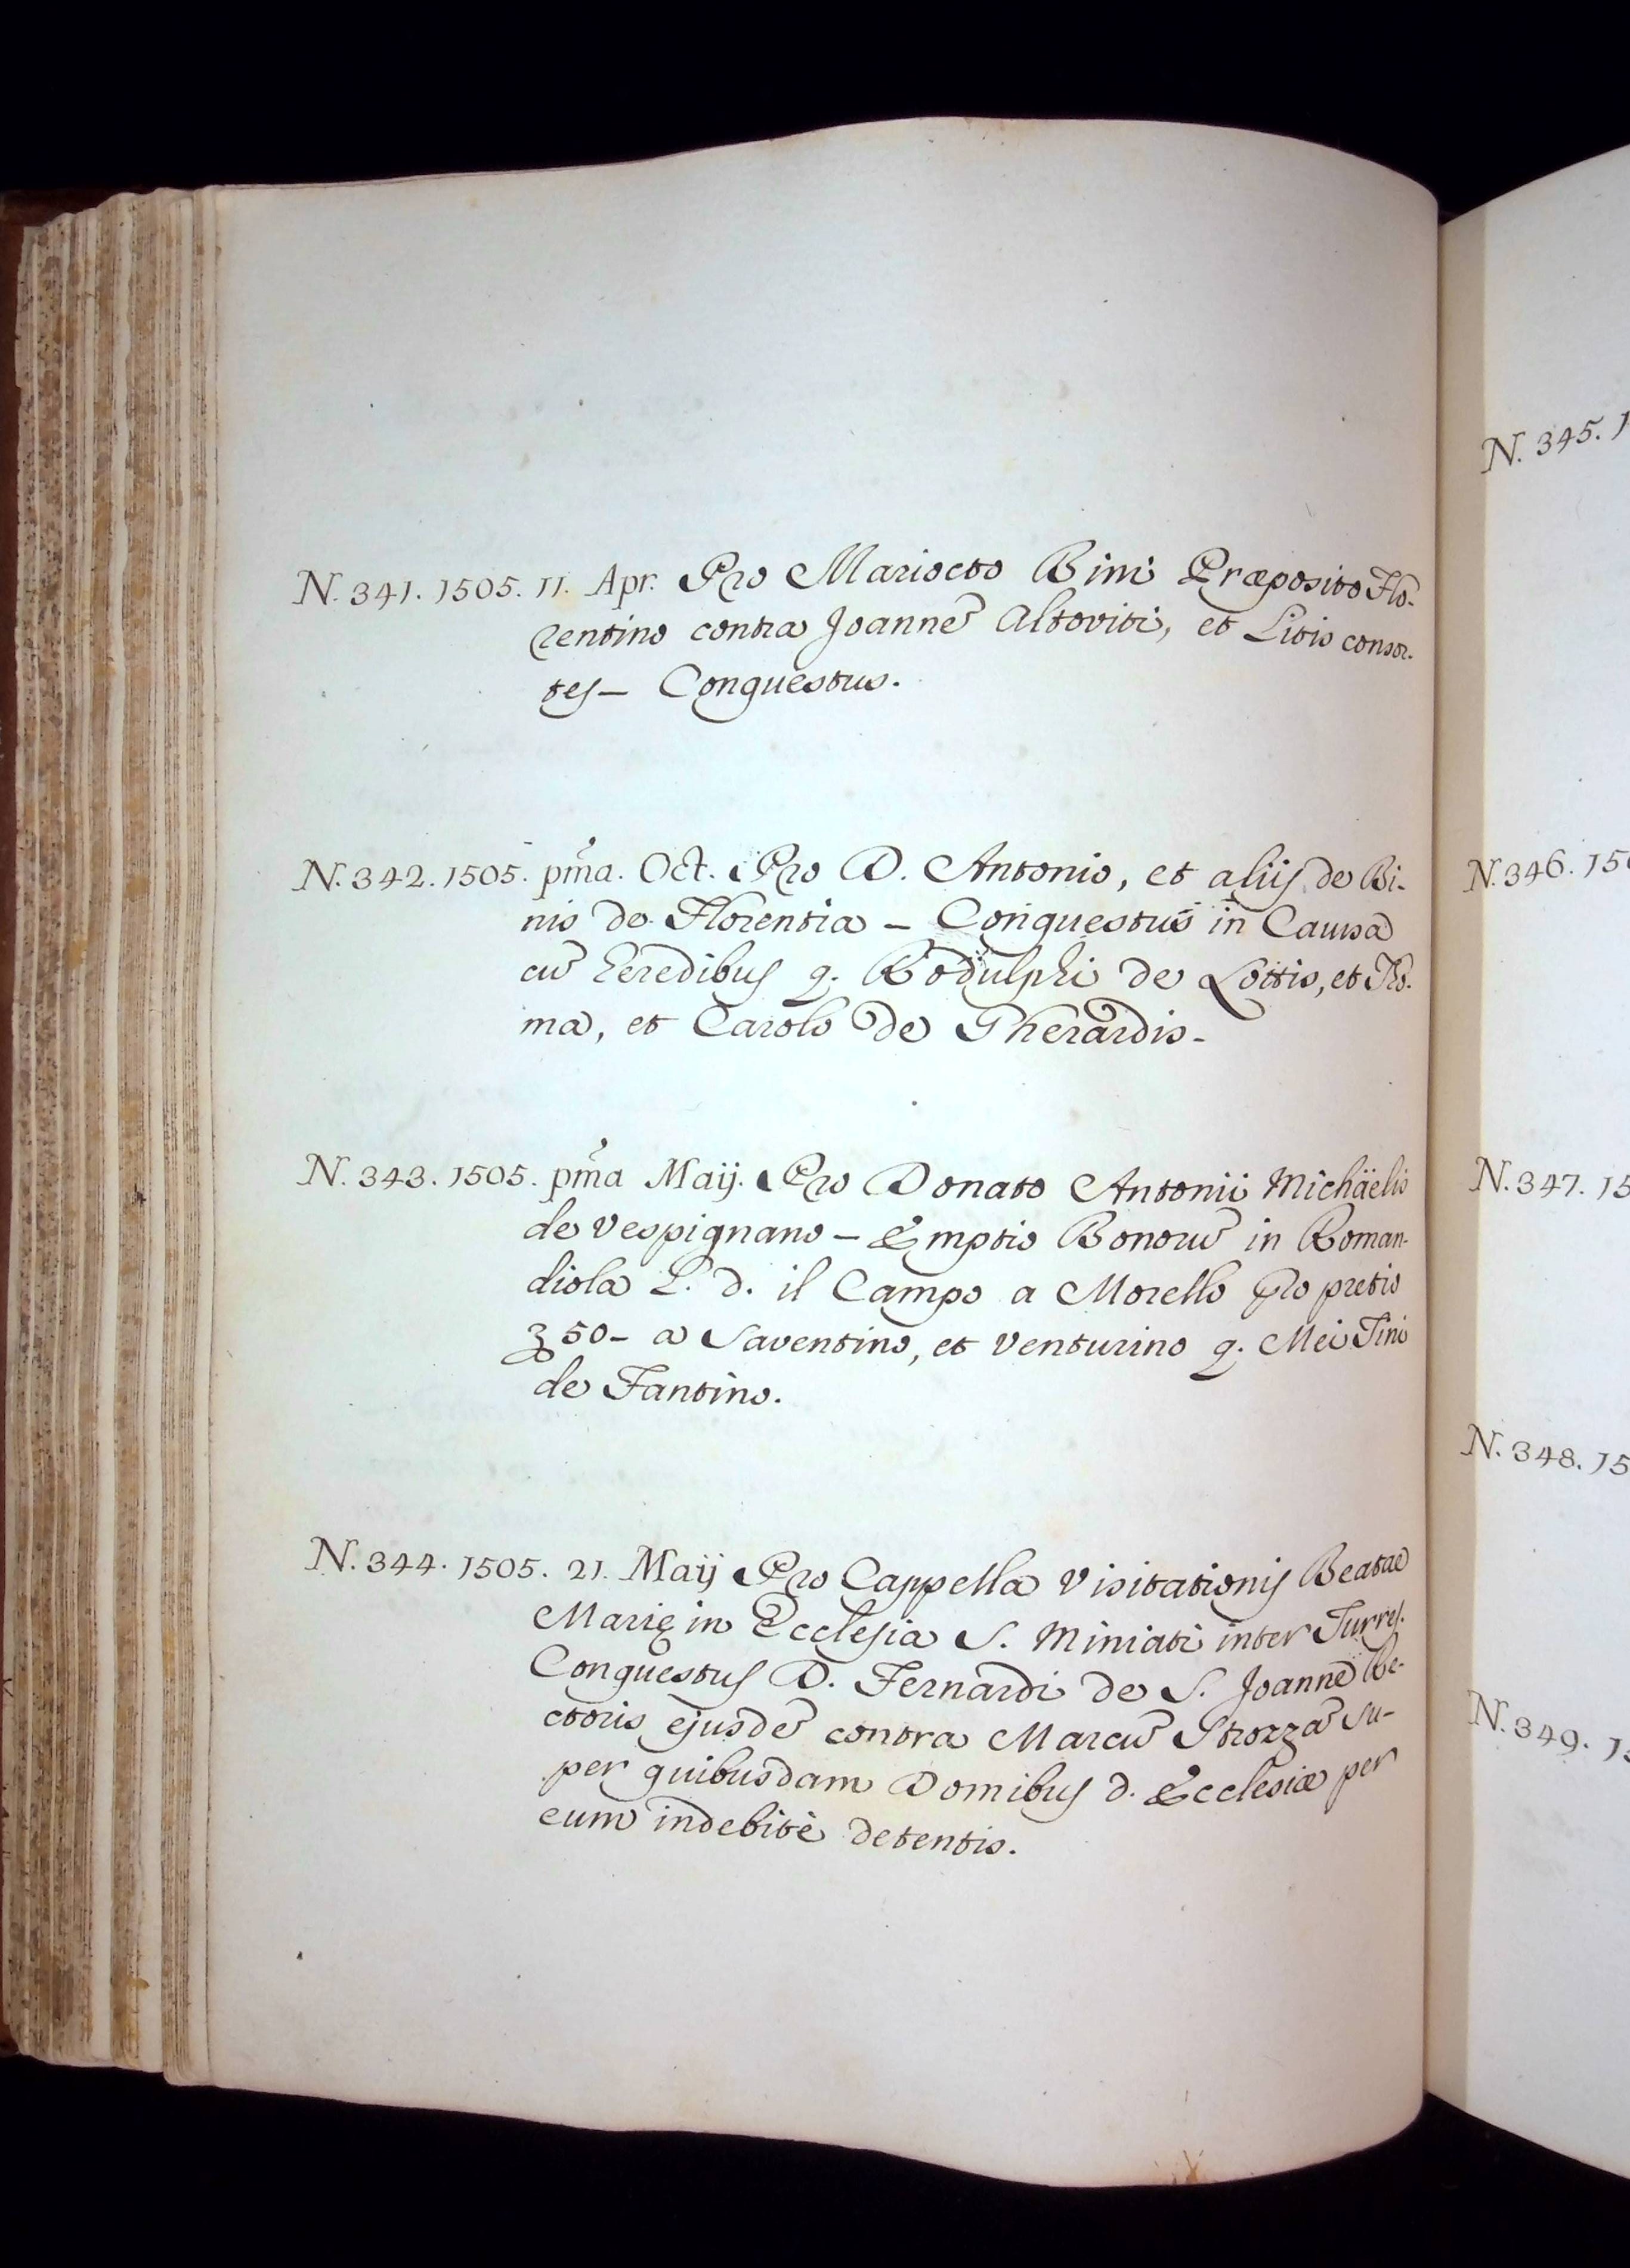 N. 341. 1505. 11. Apr. Pro Mariocto Bini Præposito Flo-
rentino contra Joannē Altoviti, et Litis consor-
tes – Conquestus.
N. 342. 1505. pm̃a. Oct. Pro D. Antonio, et aliis de Bi-
nis de Florentia – Conquestus in Causa
cū heredibus q. Rodulphi de Lottis, et Tho-
ma, et Carolo de Gherardis –
N. 343. 1505. pm̃a Maij. Pro Donato Antonii Michäelis
de Vespignano – Emptio Bonorū in Roman-
diola L. d. il Campo a Morello pro pretio
50 – a Saventino, et Venturino q. Mei Tini
de Fantino.
N. 344. 1505. 21. Maij Pro Cappella Visitationis Beatae
Marię in Ecclesia S. Miniati inter Turres.
Conquestus D. Fernardi de S. Joanne Re-
ctoris ejusdē contra Marcū Strozzā su-
per quibusdam Domibus d. Ecclesiæ per
eum indebitè detentis.
N. 345. 1
N. 346. 150
N. 347. 15
N. 348. 15
N. 349. 15